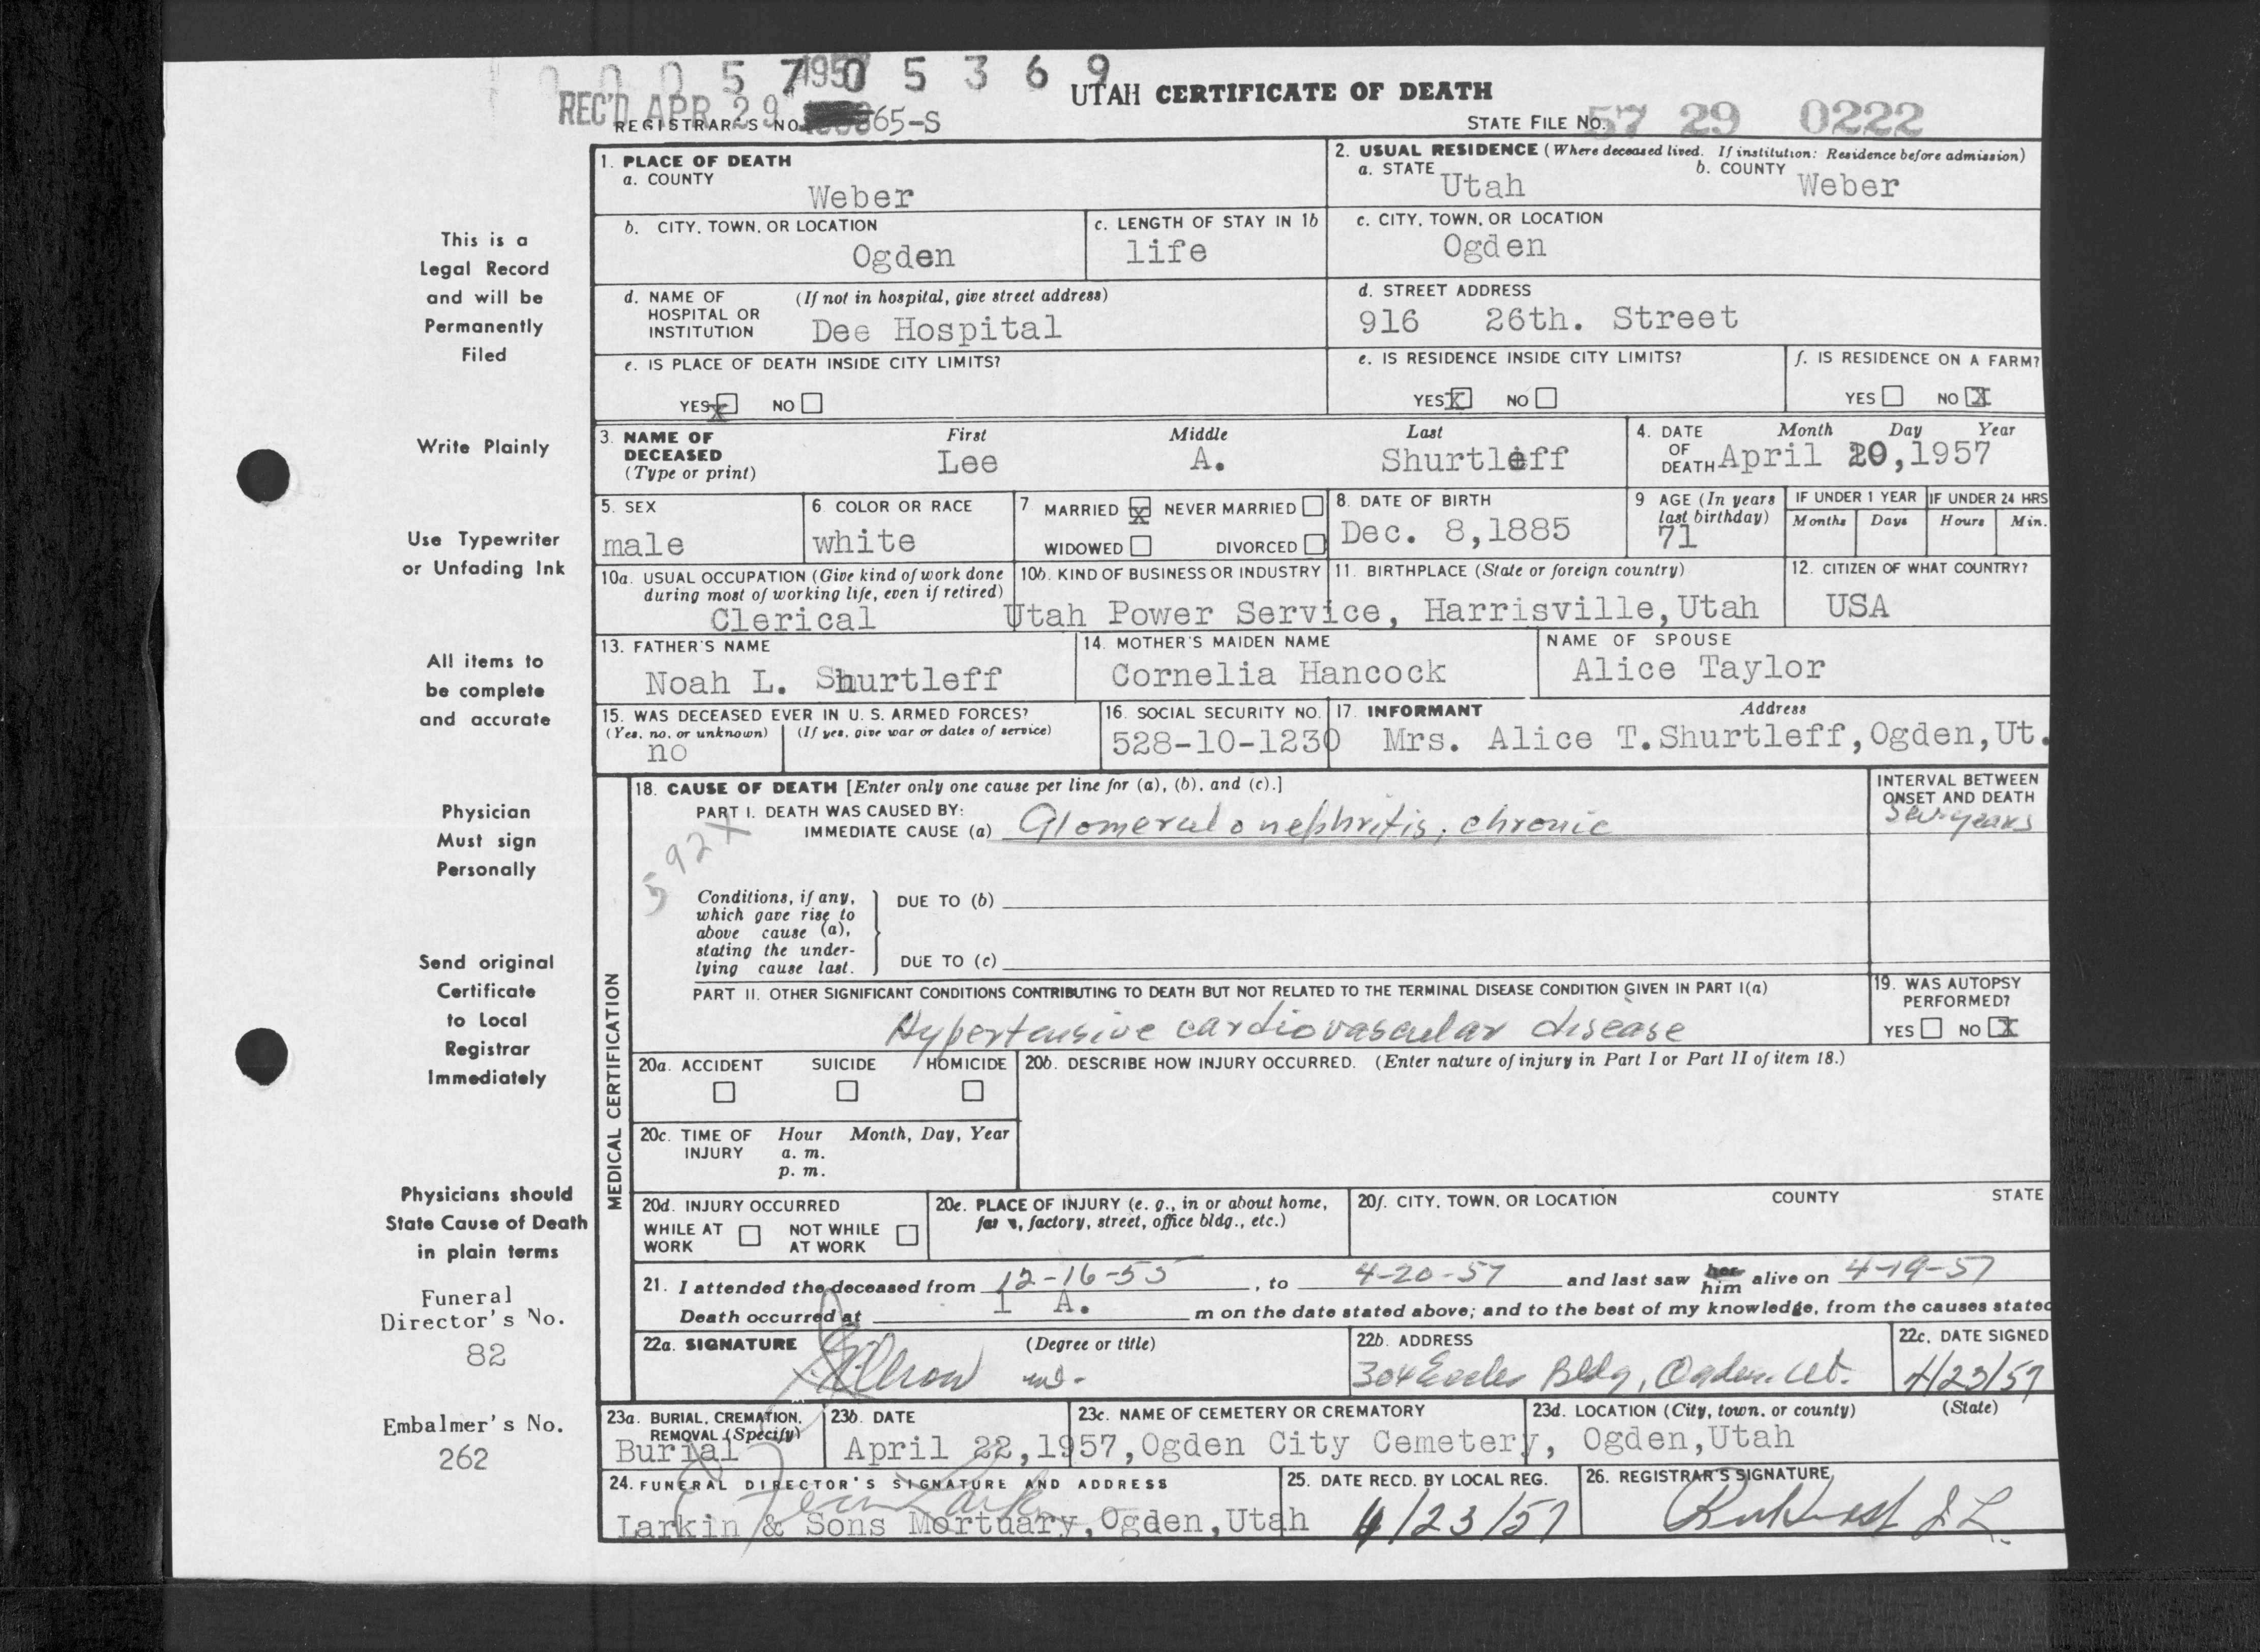 0 0 0 5 7 0 5 3 6 9
1957
REC'D APR 29
UTAH CERTIFICATE OF DEATH
REGISTRAR'S NO. 65-S
STATE FILE NO. 57 29 0222
1. PLACE OF DEATH
a. COUNTY
Weber
2. USUAL RESIDENCE (Where deceased lived. If institution: Residence before admission)
a. STATE Utah b. COUNTY Weber
b. CITY, TOWN, OR LOCATION
Ogden
c. LENGTH OF STAY IN 1b
life
c. CITY, TOWN, OR LOCATION
Ogden
d. NAME OF HOSPITAL OR INSTITUTION (If not in hospital, give street address)
Dee Hospital
d. STREET ADDRESS
916 26th. Street
e. IS PLACE OF DEATH INSIDE CITY LIMITS?
YES X NO
e. IS RESIDENCE INSIDE CITY LIMITS?
YES X NO
f. IS RESIDENCE ON A FARM?
YES NO X
3. NAME OF DECEASED (Type or print)
First Middle Last
Lee A. Shurtleff
4. DATE OF DEATH Month Day Year
April 20,1957
5. SEX
male
6. COLOR OR RACE
white
7 MARRIED X NEVER MARRIED
WIDOWED DIVORCED
8. DATE OF BIRTH
Dec. 8,1885
9 AGE (In years last birthday)
71
IF UNDER 1 YEAR IF UNDER 24 HRS
Months Days Hours Min.
10a. USUAL OCCUPATION (Give kind of work done during most of working life, even if retired)
Clerical
10b. KIND OF BUSINESS OR INDUSTRY
Utah Power Service,
11. BIRTHPLACE (State or foreign country)
Harrisville,Utah
12. CITIZEN OF WHAT COUNTRY?
USA
13. FATHER'S NAME
Noah L. Shurtleff
14. MOTHER'S MAIDEN NAME
Cornelia Hancock
NAME OF SPOUSE
Alice Taylor
15. WAS DECEASED EVER IN U. S. ARMED FORCES?
(Yes, no, or unknown) (If yes, give war or dates of service)
no
16. SOCIAL SECURITY NO.
528-10-1230
17. INFORMANT Address
Mrs. Alice T.Shurtleff,Ogden,Ut.
MEDICAL CERTIFICATION
18. CAUSE OF DEATH [Enter only one cause per line for (a), (b), and (c).]
PART I. DEATH WAS CAUSED BY:
IMMEDIATE CAUSE (a) Glomerulonephritis, chronic
592X
INTERVAL BETWEEN ONSET AND DEATH
years
Conditions, if any, which gave rise to above cause (a), stating the underlying cause last.
DUE TO (b)
DUE TO (c)
PART II. OTHER SIGNIFICANT CONDITIONS CONTRIBUTING TO DEATH BUT NOT RELATED TO THE TERMINAL DISEASE CONDITION GIVEN IN PART I(a)
Hypertensive cardiovascular disease
19. WAS AUTOPSY PERFORMED?
YES NO X
20a. ACCIDENT SUICIDE HOMICIDE
20b. DESCRIBE HOW INJURY OCCURRED. (Enter nature of injury in Part I or Part II of item 18.)
20c. TIME OF INJURY Hour Month, Day, Year
a. m.
p. m.
20d. INJURY OCCURRED
WHILE AT WORK NOT WHILE AT WORK
20e. PLACE OF INJURY (e. g., in or about home, factory, street, office bldg., etc.)
20f. CITY, TOWN, OR LOCATION COUNTY STATE
21. I attended the deceased from 12-16-55, to 4-20-57 and last saw her him alive on 4-19-57
Death occurred at 1 A. m on the date stated above; and to the best of my knowledge, from the causes stated
22a. SIGNATURE (Degree or title)
22b. ADDRESS
304 Eccles Bldg, Ogden, Ut.
22c. DATE SIGNED
4/23/57
23a. BURIAL, CREMATION, REMOVAL (Specify)
Burial
23b. DATE
April 22,1957,
23c. NAME OF CEMETERY OR CREMATORY
Ogden City Cemetery,
23d. LOCATION (City, town, or county) (State)
Ogden,Utah
24. FUNERAL DIRECTOR'S SIGNATURE AND ADDRESS
Larkin & Sons Mortuary,Ogden,Utah
25. DATE RECD. BY LOCAL REG.
4/23/57
26. REGISTRAR'S SIGNATURE
This is a
Legal Record
and will be
Permanently
Filed
Write Plainly
Use Typewriter
or Unfading Ink
All items to
be complete
and accurate
Physician
Must sign
Personally
Send original
Certificate
to Local
Registrar
Immediately
Physicians should
State Cause of Death
in plain terms
Funeral
Director's No.
82
Embalmer's No.
262